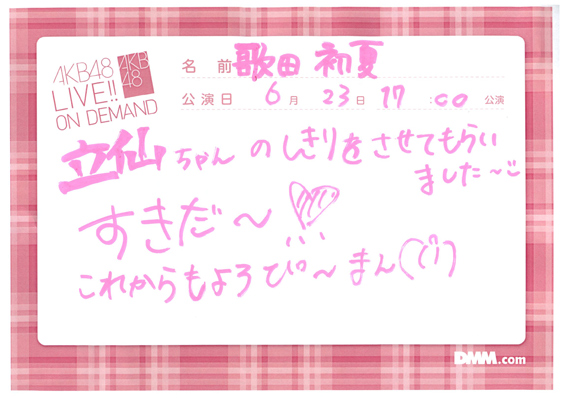 AKB48
LIVE!!
ON DEMAND
AKB
48
名 前 歌田 初夏
公演日 6月 23日 17:00 公演
立仙ちゃんのしきりをさせてもらい
ました〜
すきだ〜
これからもよろぴ〜まん
DMM.com